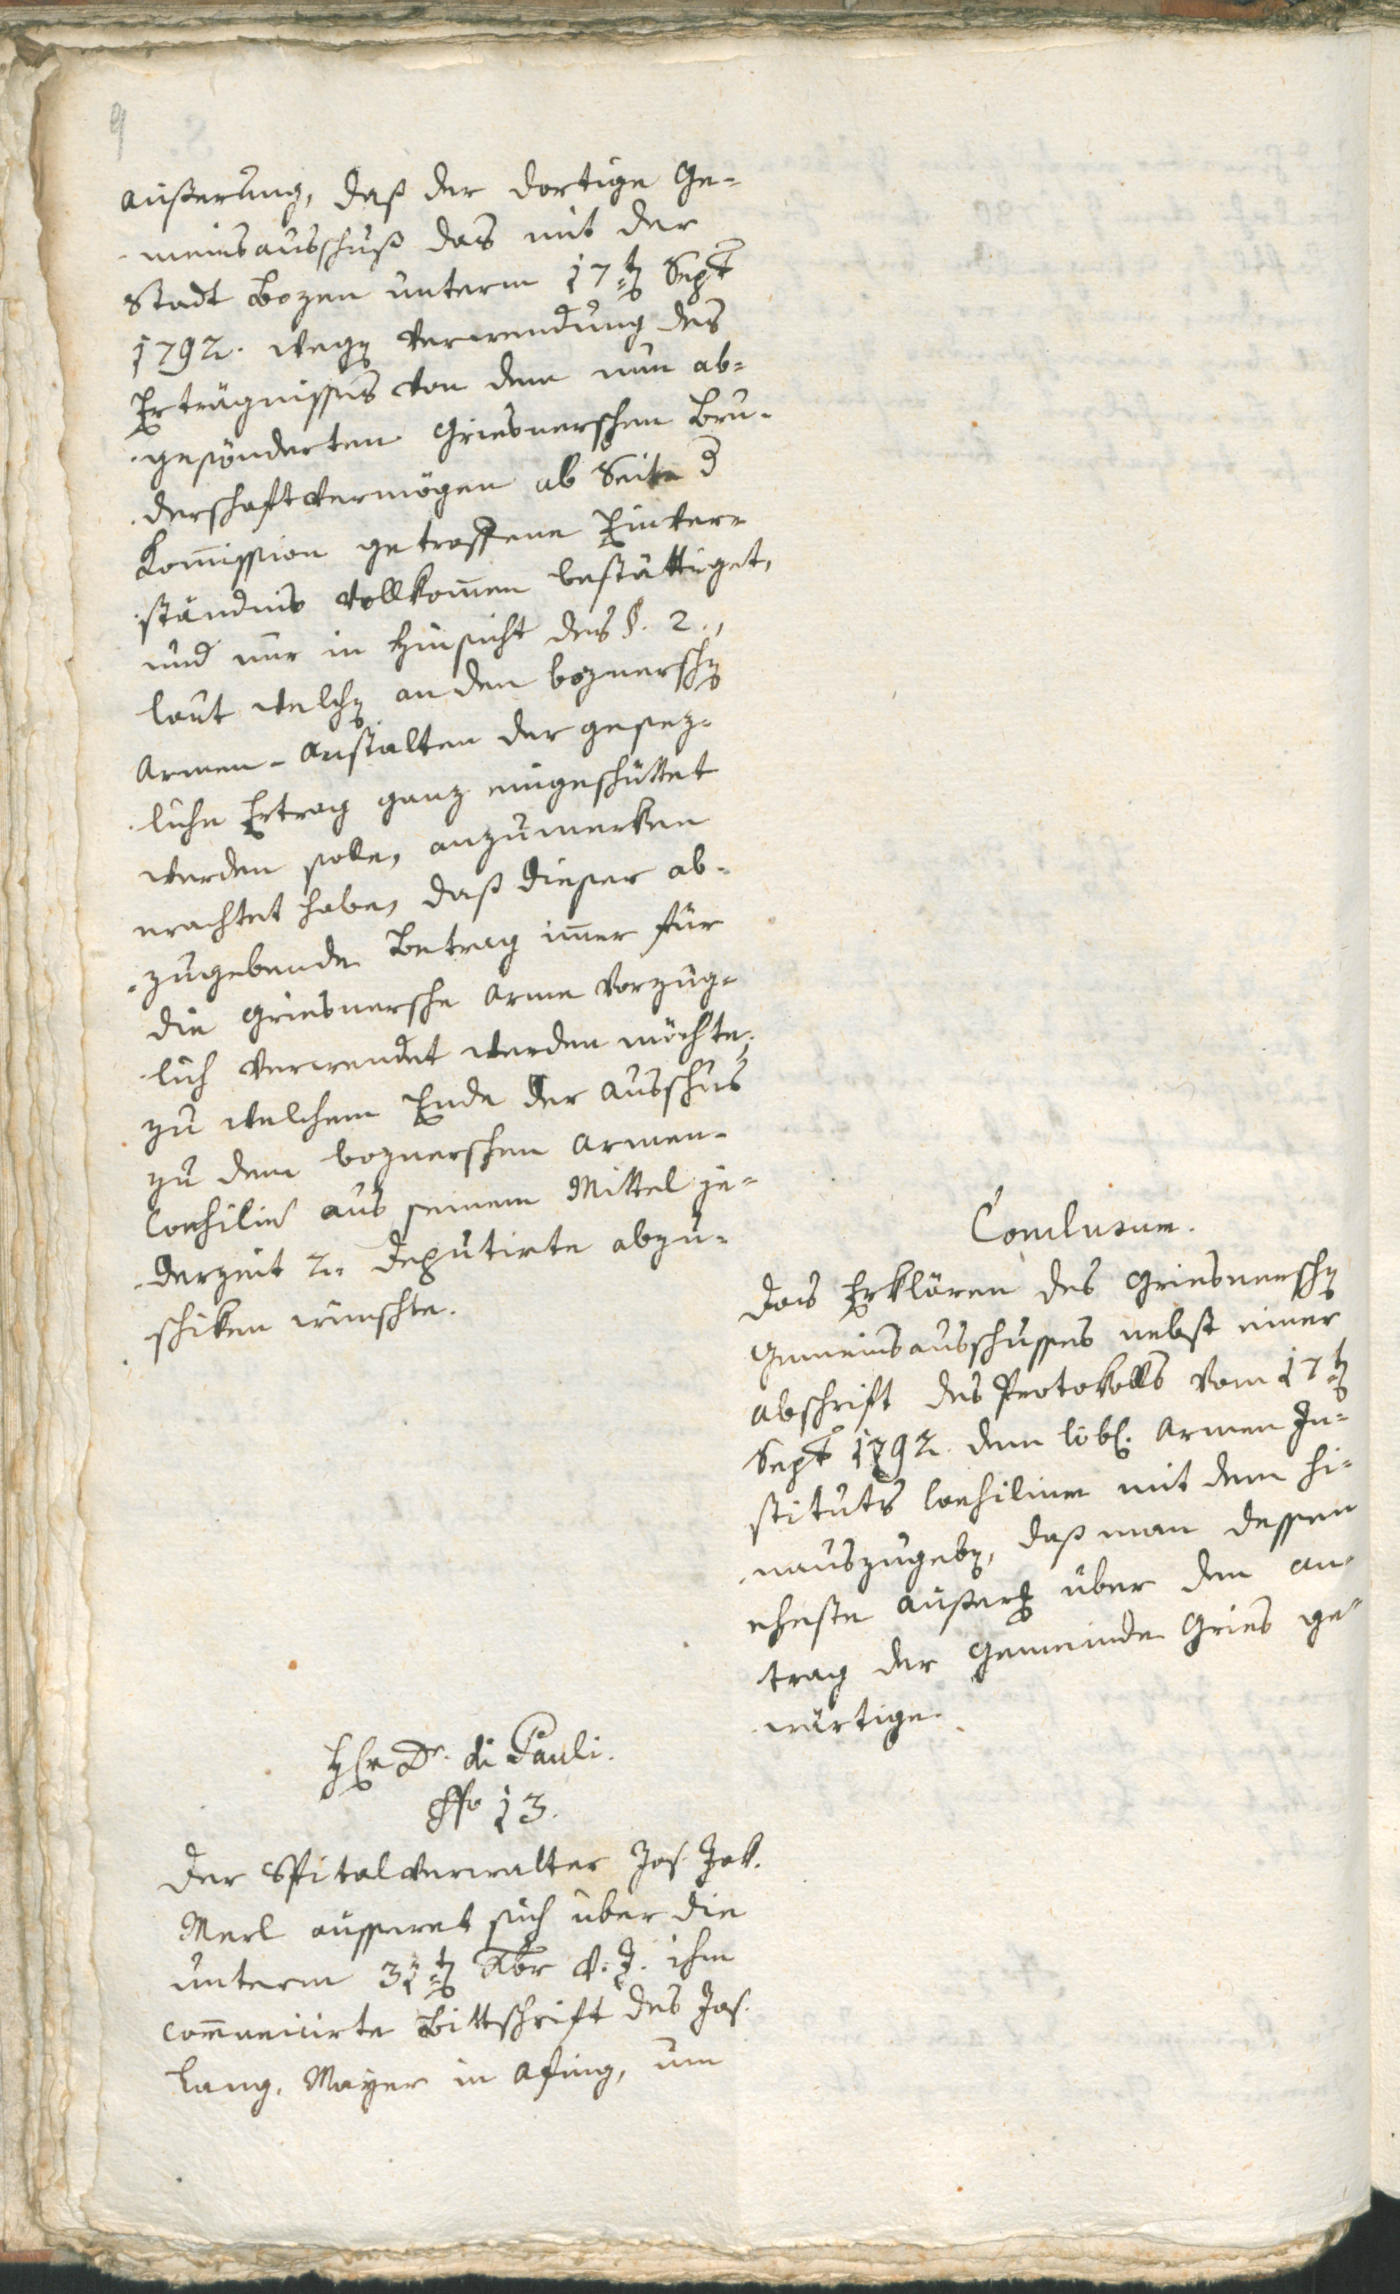 9
äusserung, daß der dortige Ge-
meindsausschuß das mit der
Stadt Bozen unterm 17ten Sept
1792. wegen Verwendung des
Erträgnisses von dem nun ab-
gesönderten Griesnerschen Bru-
derschaftvermögen ab Seite d
Kom̅ission getroffene Einver-
ständnis vollkom̅en bestättiget,
und nur in Hinsicht des §. 2.,
laut welchen an den boznerschen
Armen-Anstalten der gesez-
liche Ertrag ganz eingeschüttet
werden solle, anzumerken
erachtet habe, daß dieser ab-
zugebende Betrag im̅er für
die Griesnersche Arme vorzüg-
lich verwendet werden möchte,
zu welchem Ende der Ausschus
zu dem boznerschen Armen-
Consilium aus seinem Mittel je-
derzeit 2. Deputirte abzu-
schiken wünschte.
Conclusum.
Das Erklären des Griesnerschen
Gemeindsausschusses nebst einer
Abschrift des Protokolls vom 17ten
Sept 1792. dem löbl. Armen In-
stituts Consilium mit dem hi-
nauszugeben, daß man dessen
eheste Äusserung über den An-
trag der Gemeinde Gries ge-
wärtige.
Hr Dr. di Pauli.
No 13.
Der Spitalverwalter Jos. Jak.
Merl äusseret sich über die
unterm 31ten v. J. ihm
com̅unicirte Bittschrift des Jos.
Lang, Mayer in Afing, um